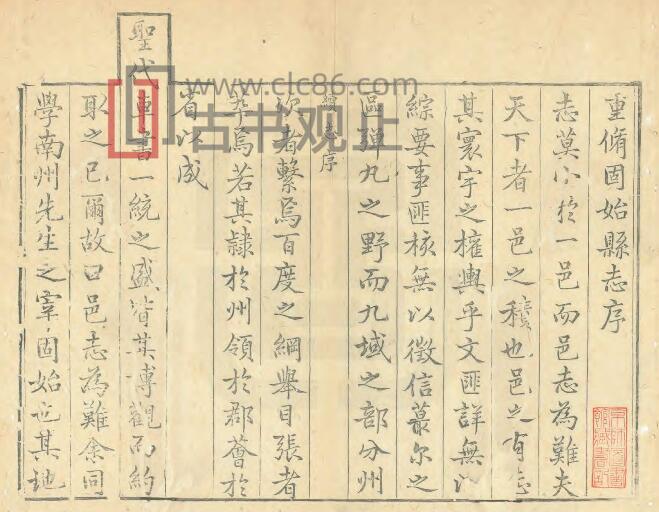 重脩固始縣志序
志莫小於一邑而邑志為難夫
天下者一邑之積也邑之有志
其寰宇之權輿乎文匪詳無以
綜要事匪核無以徵信蕞尔之
區彈丸之野而九域之部分州
縣志序
次者繫焉百度之綱舉目張者
焉若其隸於州領於郡薈於
省以成
聖代車書一統之盛皆其博觀而約
取之已爾故曰邑志為難余同
學南州先生之宰固始也其地
www.clc86.com
古书观止